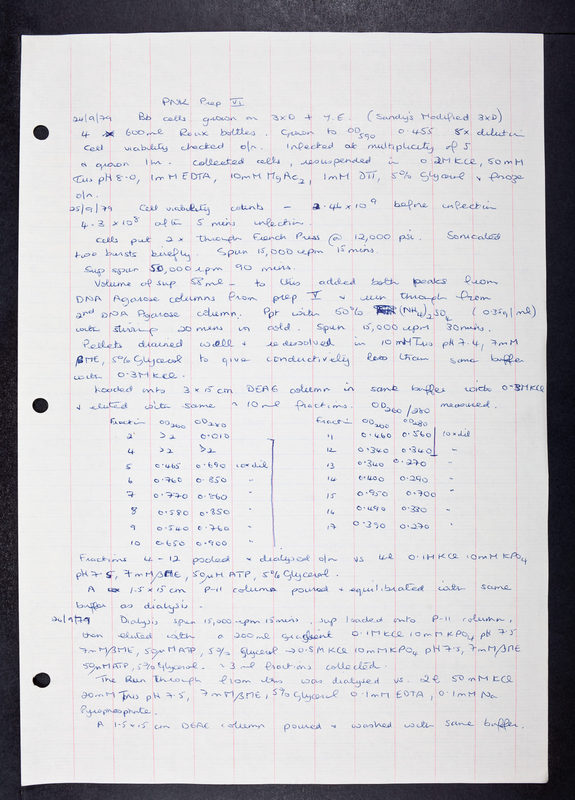 PNK Prep VI
24/9/79 Bb cells grown in 3xD + Y.E. (Sandy's Modified 3xD)
4 x 600ml Roux bottles. Grown to OD590 0.455 8x dilution
Cell viability checked o/n. Infected at multiplicity of 5
& grown 1hr. Collected cells, resuspended in 0.2M KCl, 50mM
Tris pH 8.0, 1mM EDTA, 10mM MgAc2, 1mM DTT, 5% Glycerol & froze
o/n.
25/9/79 Cell viability counts - 2.46 x 10^9 before infection
4.3 x 10^8 after 5 mins infection.
Cells put 2x through French Press @ 12,000 psi. Sonicated
two bursts briefly. Span 15,000 rpm 15 mins.
Sup span 50,000 rpm 90 mins.
Volume of sup 58ml - to this added both peaks from
DNA Agarose columns from prep V & run through from
2nd DNA Agarose column. Ppt with 50% (NH4)2SO4 (0.35g/ml)
with stirring 20 mins in cold. Span 15,000 rpm 30 mins.
Pellets drained well & redissolved in 10mM Tris pH 7.4, 7mM
βME, 5% Glycerol to give conductivity less than same buffer
with 0.3M KCl.
Loaded onto 3 x 15 cm DEAE column in same buffer with 0.3M KCl
& eluted with same ~ 10ml fractions. OD260/280 measured.
Fraction OD260 OD280 Fraction OD260 OD280
2 >2 0.010 11 0.460 0.560 10x dil
4 >2 >2 12 0.340 0.340 "
5 0.465 0.690 10x dil 13 0.340 0.270 "
6 0.760 0.850 " 14 0.400 0.290 "
7 0.770 0.860 " 15 0.950 0.700 "
8 0.580 0.850 " 16 0.490 0.380 "
9 0.540 0.760 " 17 0.390 0.270 "
10 0.650 0.900 "
Fractions 4-12 pooled & dialysed o/n vs 4l 0.1M KCl 10mM KPO4
pH 7.5, 7mM βME, 50μM ATP, 5% Glycerol.
A 1.5 x 15 cm P-11 column poured & equilibrated with same
buffer as dialysis.
26/9/79 Dialysis span 15,000 rpm 15 mins. Sup loaded onto P-11 column,
then eluted with a 200ml gradient 0.1M KCl 10mM KPO4 pH 7.5
7mM βME, 50μM ATP, 5% Glycerol → 0.5M KCl 10mM KPO4 pH 7.5, 7mM βME
50μM ATP, 5% Glycerol. ~3ml fractions collected.
The Run Through from this was dialysed vs. 2l 50mM KCl
20mM Tris pH 7.5, 7mM βME, 5% Glycerol 0.1mM EDTA, 0.1mM Na
Pyrophosphate.
A 1.5 x 15 cm DEAE column poured & washed with same buffer.